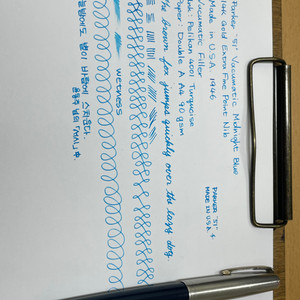 Parker "51" Vacumatic Midnight Blue
14K Gold Extra Fine Point Nib
Made in U.S.A. 1946
Vacumatic Filler
Ink: Pelikan 4001 Turquoise
Paper: Double A A4 90 gsm
The brown fox jumps quickly over the lazy dog
wetness
오늘밤에도 별이 바람에 스치운다.
윤동주 님의 「서시」 中.
PARKER "51"
MADE IN U.S.A. 4